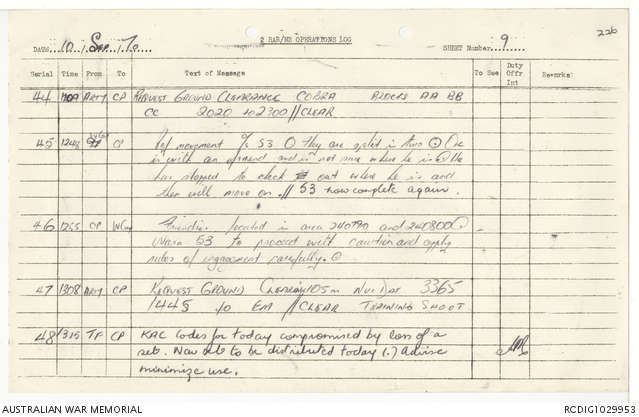 226
2 RAR/NZ OPERATIONS LOG
DATE 10 Sep 70
SHEET Number 9
Serial Time From To Text of Message To See Duty Offr Int Remarks
44 ARTY CP REQUEST GROUND CLEARANCE COBRA BLOCKS AA BB
CC 2020 402300 // CLEAR
45 1243 CP Ref movement of 53 O they are split in two O
is with an and is not sure where he is O He
has stopped to check out where he is and
then will move on. // 53 now complete again.
46 1255 CP located in area 240790 and 240800 O
Warn 53 to proceed with caution and apply
rules of engagement carefully. O
47 1308 ARTY CP REQUEST GROUND CLEARANCE 105m NUI DAT 3365
1445 to EM // CLEAR TRAINING SHOOT
48 1315 TF CP KAC codes for today compromised by loss of a
set. New sets to be distributed today (.) Advise
minimize use.
AUSTRALIAN WAR MEMORIAL
RCDIG1029953